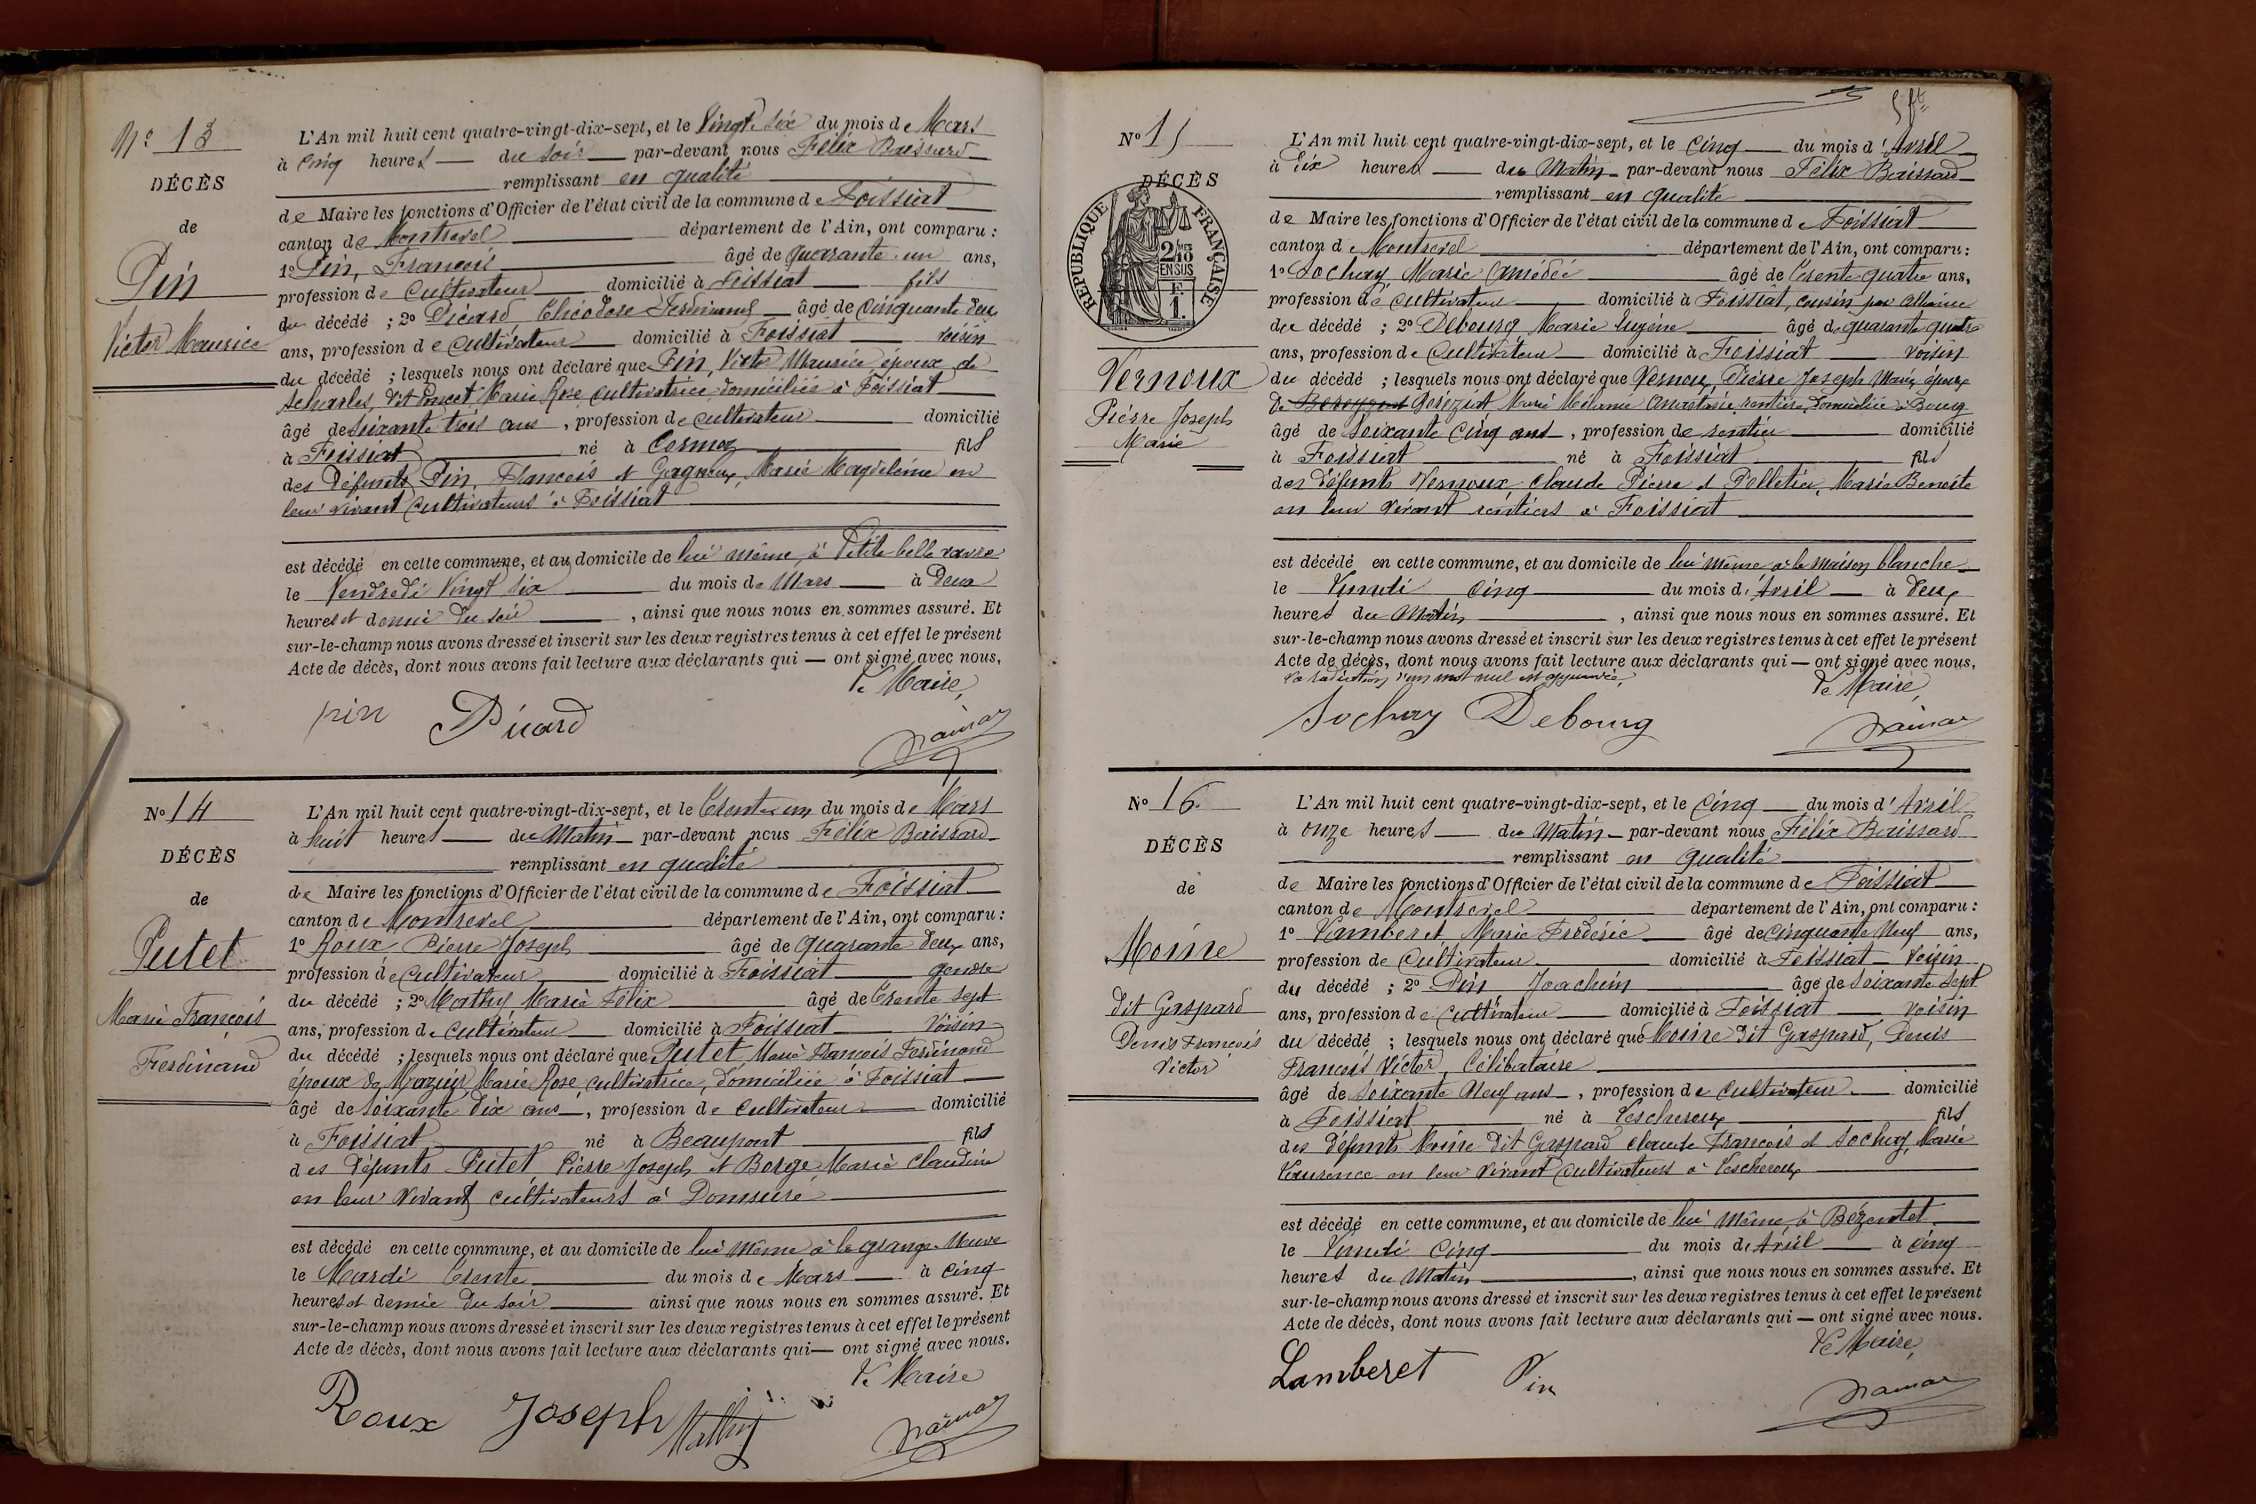 N° 13
DÉCÈS
de
Pin
Victor Maurice
L'An mil huit cent quatre-vingt-dix-sept, et le Vingt six du mois de Mars
à Cinq heures du soir par-devant nous Félix Baissard
remplissant en qualité
de Maire les fonctions d'Officier de l'état civil de la commune de Foissiat
canton de Montrevel département de l'Ain, ont comparu :
1° Pin, François âgé de quarante un ans,
profession de Cultivateur domicilié à Foissiat fils
du décédé ; 2° Picard Théodore Ferdinand âgé de Cinquante deux
ans, profession de Cultivateur domicilié à Foissiat voisin
du décédé ; lesquels nous ont déclaré que Pin, Victor Maurice époux de
dit Poncet Marie Rose cultivatrice, domiciliée à Foissiat
âgé de soixante trois ans, profession de cultivateur domicilié
à Foissiat né à Cormoz fils
des défunts Pin, François et Marie Magdeleine en
leur vivant Cultivateurs à Foissiat
est décédé en cette commune, et au domicile de lui même, à Petite belle
le Vendredi Vingt six du mois de Mars à Deux
heures et demie du soir, ainsi que nous nous en sommes assuré. Et
sur-le-champ nous avons dressé et inscrit sur les deux registres tenus à cet effet le présent
Acte de décès, dont nous avons fait lecture aux déclarants qui — ont signé avec nous.
Le Maire,
pin Picard
N° 14
DÉCÈS
de
Putet
Marie François
Ferdinand
L'An mil huit cent quatre-vingt-dix-sept, et le Trente un du mois de Mars
à huit heures du Matin par-devant nous Félix Baissard
remplissant en qualité
de Maire les fonctions d'Officier de l'état civil de la commune de Foissiat
canton de Montrevel département de l'Ain, ont comparu :
1° Roux Pierre Joseph âgé de Quarante deux ans,
profession de Cultivateur domicilié à Foissiat gendre
du décédé ; 2° Mathy Marie Félix âgé de Trente sept
ans, profession de cultivateur domicilié à Foissiat Voisin
du décédé ; lesquels nous ont déclaré que Putet Marie François Ferdinand
époux de Mazuir Marie Rose, cultivatrice, domiciliée à Foissiat
âgé de soixante dix ans, profession de Cultivateur domicilié
à Foissiat né à Beaupont fils
des défunts Putet Pierre Joseph et Borge Marie Claudine
en leur vivant cultivateurs à Domsure
est décédé en cette commune, et au domicile de lui même à la grange Neuve
le Mardi Trente du mois de Mars à Cinq
heures et demie du soir ainsi que nous nous en sommes assuré. Et
sur-le-champ nous avons dressé et inscrit sur les deux registres tenus à cet effet le présent
Acte de décès, dont nous avons fait lecture aux déclarants qui — ont signé avec nous.
Le Maire
Roux Joseph Mathy
N° 15
DÉCÈS
RÉPUBLIQUE FRANÇAISE
2/10
EN SUS
F
1.
Vernoux
Pierre Joseph
Marie
L'An mil huit cent quatre-vingt-dix-sept, et le Cinq du mois d'Avril
à dix heures du Matin par-devant nous Félix Baissard
remplissant en qualité
de Maire les fonctions d'Officier de l'état civil de la commune de Foissiat
canton de Montrevel département de l'Ain, ont comparu :
1° Sochay, Marie Amédée âgé de Trente quatre ans,
profession de cultivateur domicilié à Foissiat, cousin par alliance
du décédé ; 2° Debourg Marie Eugène âgé de quarante quatre
ans, profession de Cultivateur domicilié à Foissiat Voisin
du décédé ; lesquels nous ont déclaré que Vernoux, Pierre Joseph Marie, époux
de Marie Mélanie Anastasie, rentière, domiciliée à Bourg
âgé de soixante cinq ans, profession de rentier domicilié
à Foissiat né à Foissiat fils
des défunts Vernoux Claude Pierre et Pelletier, Marie Benoite
en leur vivant rentiers à Foissiat
est décédé en cette commune, et au domicile de lui même à la maison blanche
le Lundi cinq du mois d'Avril à deux
heures du Matin, ainsi que nous nous en sommes assuré. Et
sur-le-champ nous avons dressé et inscrit sur les deux registres tenus à cet effet le présent
Acte de décès, dont nous avons fait lecture aux déclarants qui — ont signé avec nous.
La radiation d'un mot nul est approuvée.
Le Maire,
Sochay Debourg
N° 16.
DÉCÈS
de
Moine
dit Gaspard
Denis François
Victor
L'An mil huit cent quatre-vingt-dix-sept, et le Cinq du mois d'Avril
à onze heures du Matin par-devant nous Félix Baissard
remplissant en qualité
de Maire les fonctions d'Officier de l'état civil de la commune de Foissiat
canton de Montrevel département de l'Ain, ont comparu :
1° Lamberet Marie Frédéric âgé de Cinquante Neuf ans,
profession de Cultivateur domicilié à Foissiat Voisin
du décédé ; 2° Pin Joachim âgé de soixante sept
ans, profession de Cultivateur domicilié à Foissiat voisin
du décédé ; lesquels nous ont déclaré que Moine dit Gaspard, Denis
François Victor, Célibataire
âgé de soixante Neuf ans, profession de Cultivateur domicilié
à Foissiat né à Lescheroux fils
des défunts Moine dit Gaspard Claude François et Sochay, Marie
Laurence en leur vivant cultivateurs à Lescheroux
est décédé en cette commune, et au domicile de lui même à Bézentet
le Lundi Cinq du mois d'Avril à Cinq
heures du Matin, ainsi que nous nous en sommes assuré. Et
sur-le-champ nous avons dressé et inscrit sur les deux registres tenus à cet effet le présent
Acte de décès, dont nous avons fait lecture aux déclarants qui — ont signé avec nous.
Le Maire,
Lamberet Pin